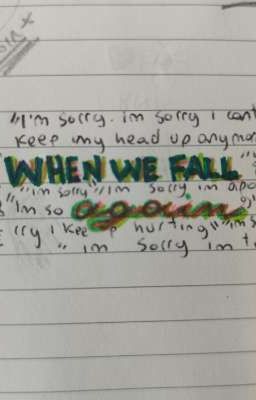 "I'm sorry. im sorry i cant
keep my head up anymor
WHEN WE FALL
"im sorry" "im sorry im apo
"Im so again
rry i kee p hurting" "im s
" im sorry im t